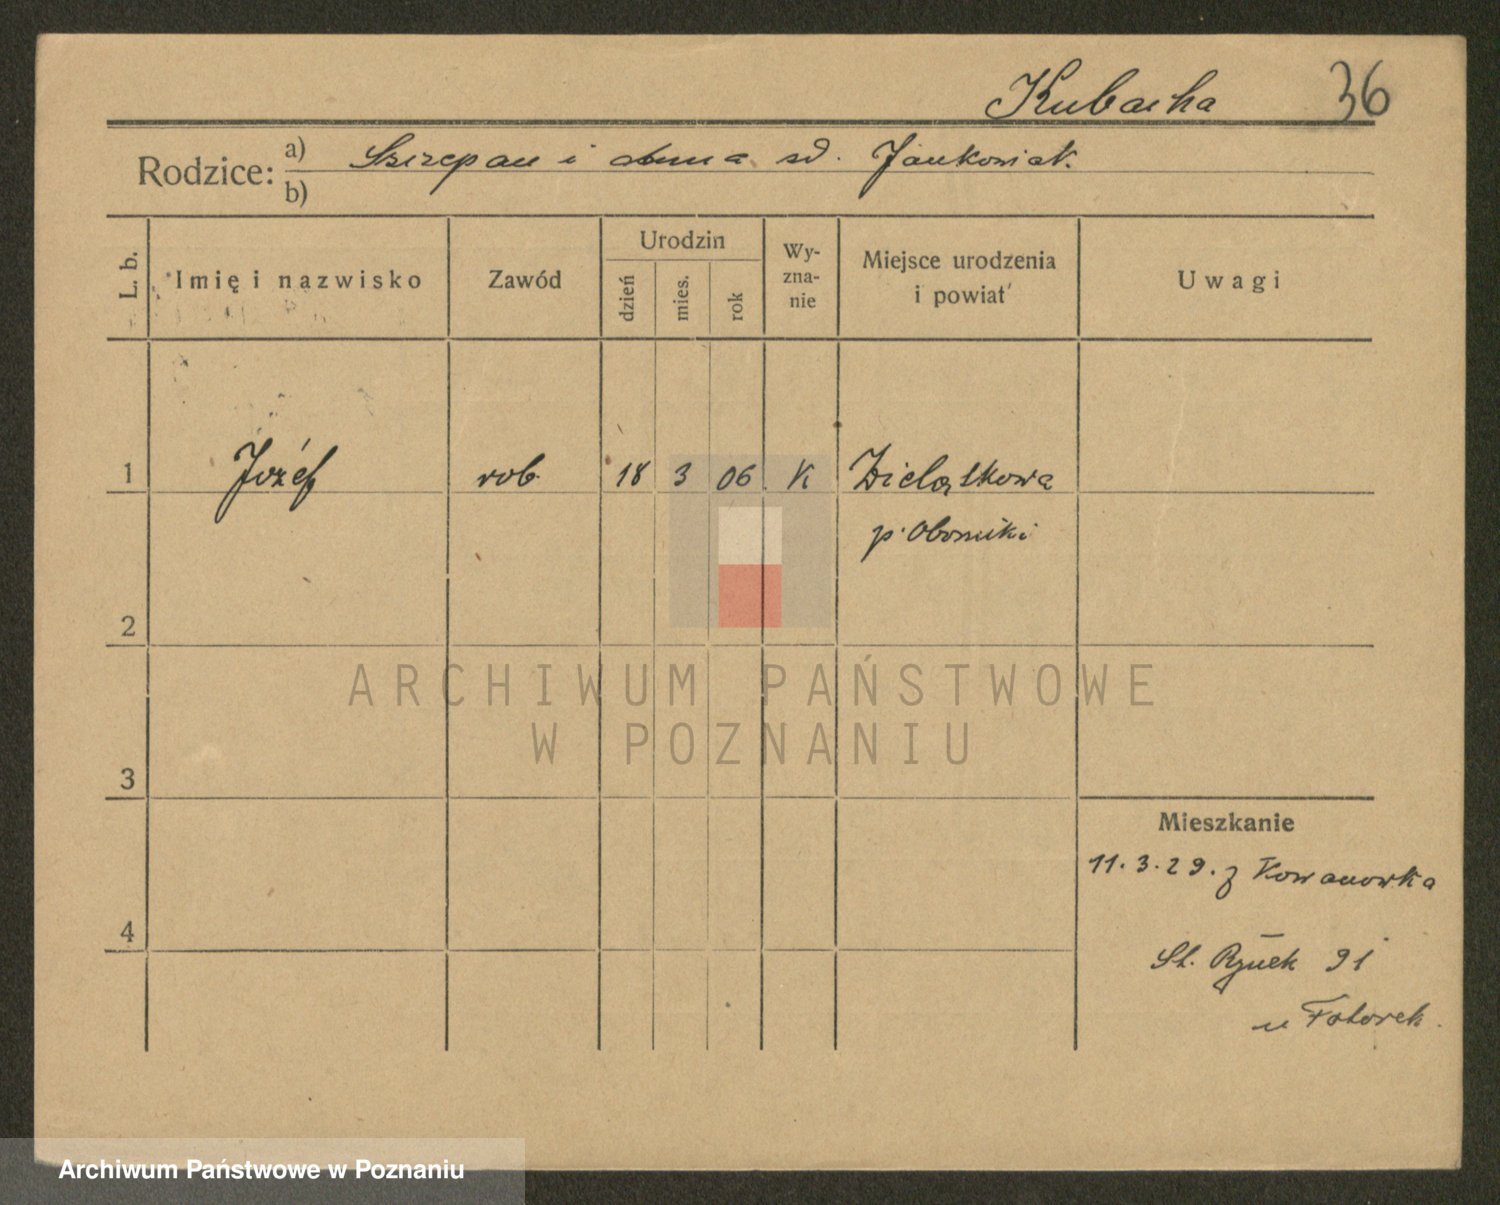 Kubacha 36
Rodzice: a) Szczepan i Anna zd. Jankowiak.
b)
L. b. Imię i nazwisko Zawód Urodzin dzień mies. rok Wy-zna-nie Miejsce urodzenia i powiat Uwagi
1 Józef rob. 18 3 06 K Zielątkowa
p. Oborniki
2
ARCHIWUM PAŃSTWOWE
W POZNANIU
3
Mieszkanie
11.3.29. z Kowanowka
4
St. Rynek 91
u
Archiwum Państwowe w Poznaniu